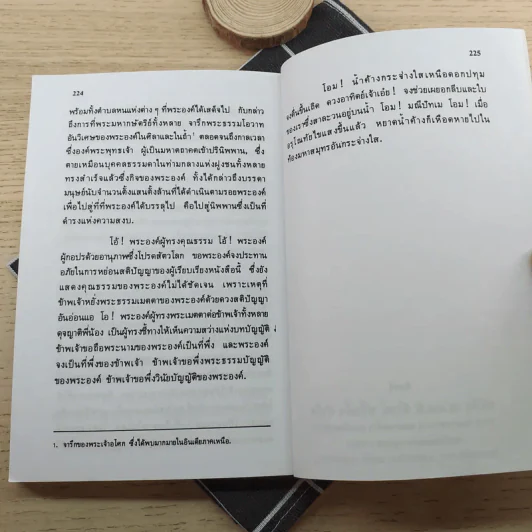 224
พร้อมทั้งตำบลหนแห่งต่าง ๆ ที่พระองค์ได้เสด็จไป กับกล่าว
ถึงการที่พระมหากษัตริย์ทั้งหลาย จารึกพระธรรมโอวาท
อันวิเศษของพระองค์ในศิลาและในถ้ำ¹ ตลอดจนถึงกาลเวลา
ซึ่งองค์พระพุทธเจ้า ผู้เป็นมหาตถาคตเข้าปรินิพพาน, ซึ่ง
ตายเหมือนบุคคลธรรมดาในท่ามกลางแห่งฝูงชนทั้งหลาย
ทรงสำเร็จแล้วซึ่งกิจของพระองค์ ทั้งได้กล่าวถึงบรรดา
มนุษย์นับจำนวนตั้งแสนตั้งล้านที่ได้ดำเนินตามรอยพระองค์
เพื่อไปสู่ที่ที่พระองค์ได้บรรลุไป คือไปสู่นิพพานซึ่งเป็นที่
ดำรงแห่งความสงบ.
โอ้! พระองค์ผู้ทรงคุณธรรม โอ้! พระองค์
ผู้กอปรด้วยอานุภาพซึ่งโปรดสัตว์โลก ขอพระองค์จงประทาน
อภัยในการหย่อนสติปัญญาของผู้เรียบเรียงหนังสือนี้ ซึ่งยัง
แสดงคุณธรรมของพระองค์ไม่ได้ชัดเจน เพราะเหตุที่
ข้าพเจ้าหยั่งพระธรรมเมตตาของพระองค์ด้วยดวงสติปัญญา
อันอ่อนแอ โอ! พระองค์ผู้ทรงพระเมตตาต่อข้าพเจ้าทั้งหลาย
ดุจญาติพี่น้อง เป็นผู้ทรงชี้ทางให้เห็นความสว่างแห่งบทบัญญัติ
ข้าพเจ้าขอถือพระนามของพระองค์เป็นที่พึ่ง และพระองค์
จงเป็นที่พึ่งของข้าพเจ้า ข้าพเจ้าขอพึ่งพระธรรมบัญญัติ
ของพระองค์ ข้าพเจ้าขอพึ่งวินัยบัญญัติของพระองค์.
1. จารึกของพระเจ้าอโศก ซึ่งได้พบมากมายในอินเดียภาคเหนือ.
225
โอม! น้ำค้างกระจ่างใสเหนือดอกปทุม
จงตื่นขึ้นเถิด ดวงอาทิตย์เจ้าเอ๋ย! จงช่วยเผยอกลีบและใบ
ของเราซึ่งสาละวนอยู่บนน้ำ โอม! มณีปัทเม โฮม! เมื่อ
อรุโณทัยไขแสงขึ้นแล้ว หยาดน้ำค้างก็เหือดหายไปใน
ห้องมหาสมุทรอันกระจ่างใส.